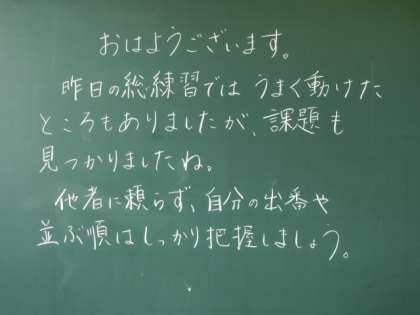 おはようございます。
昨日の総練習では うまく動けた
ところもありましたが、課題も
見つかりましたね。
他者に頼らず、自分の出番や
並ぶ順はしっかり把握しましょう。